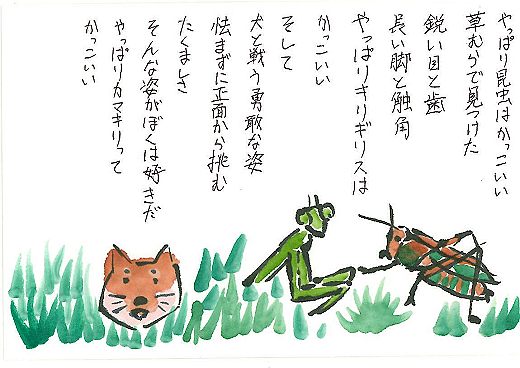 やっぱり昆虫はかっこいい
草むらで見つけた
鋭い目と歯
長い脚と触角
やっぱりキリギリスは
かっこいい
そして
犬と戦う勇敢な姿
怯まずに正面から挑む
たくましさ
そんな姿がぼくは好きだ
やっぱりカマキリって
かっこいい